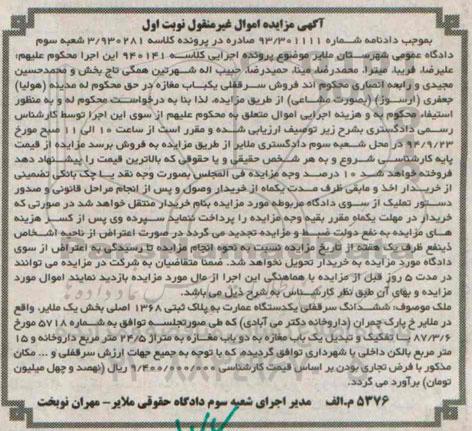 آگهی مزایده اموال غیرمنقول نوبت اول
بموجب دادنامه شماره ۹۳/۳۰۱۱۱۱ صادره در پرونده کلاسه ۳/۹۳۰۲۸۱ شعبه سوم
دادگاه عمومی شهرستان ملایر موضوع پرونده اجرایی کلاسه ۹۴۰۱۴۱ این اجرا محکوم علیهم:
علیرضا، فریبا، میترا، محمدرضا، مینا، حمیدرضا، حبیب اله شهرتین همگی تاج بخش و محمدحسین
مجیدی و رابعه انصاری محکوم اند فروش سرقفلی یکباب مغازه در حق محکوم له مدینه (هولیا)
جعفری (ارسوز) (بصورت مشاعی) از طریق مزایده، لذا بنا به درخواست محکوم له و به منظور
استیفاء محکوم به و هزینه اجرایی اموال متعلق به محکوم علیهم از سوی این اجرا توسط کارشناس
رسمی دادگستری بشرح زیر توصیف ارزیابی شده و مقرر است از ساعت ۱۰ الی ۱۱ صبح مورخ
۹۴/۹/۲۳ در محل شعبه سوم دادگستری ملایر از طریق مزایده به فروش برسد مزایده از قیمت
پایه کارشناسی شروع و به هر شخص حقیقی و یا حقوقی که بالاترین قیمت را پیشنهاد دهد
فروخته خواهد شد ۱۰ درصد وجه مزایده فی المجلس بصورت وجه نقد یا چک بانکی تضمینی
از خریدار اخذ و مابقی ظرف مدت یکماه از خریدار وصول و پس از انجام مراحل قانونی و صدور
دستور تملیک از سوی دادگاه مربوطه مورد مزایده بنام خریدار منتقل خواهد شد در صورتی که
خریدار در مهلت یکماه مقرر بقیه وجه مزایده را پرداخت ننماید سپرده وی پس از کسر هزینه
های مزایده به نفع دولت ضبط و مزایده تجدید می گردد در صورت اعتراض از ناحیه اشخاص
ذینفع ظرف یک هفته از تاریخ مزایده نسبت به نحوه انجام مزایده تا رسیدگی به اعتراض از سوی
دادگاه مورد مزایده به خریدار تحویل نخواهد شد. ضمنا متقاضیان به شرکت در مزایده می توانند
در مدت ۵ روز قبل از مزایده با هماهنگی این اجرا از مال مورد مزایده بازدید نمایند اموال مورد
مزایده و بهای آن طبق نظر کارشناس به شرح ذیل می باشد.
ملک موصوف: ششدانگ سرقفلی یکدستگاه عمارت به پلاک ثبتی ۱۳۶۸ اصلی بخش یک ملایر، واقع
در ملایر خ پارک چمران (داروخانه دکتر می آبادی) که طی صورتجلسه توافق به شماره ۵۷۱۸ مورخ
۸۷/۳/۶ با تفکیک و تبدیل یک باب مغازه به دو باب مغازه به متراژ ۲۴/۵ متر مربع داروخانه و ۱۵
متر مربع بالکن داخلی با شهرداری توافق گردیده، که با توجه به جمیع جهات ارزش سرقفلی و ... مکان
مذکور با فرض تجاری بودن بر اساس قیمت کارشناسی ۹/۴۰۰/۰۰۰/۰۰۰ ریال (نهصد و چهل میلیون
تومان) برآورد می گردد.
۵۳۷۶ م.الف مدیر اجرای شعبه سوم دادگاه حقوقی ملایر- مهران نوبخت